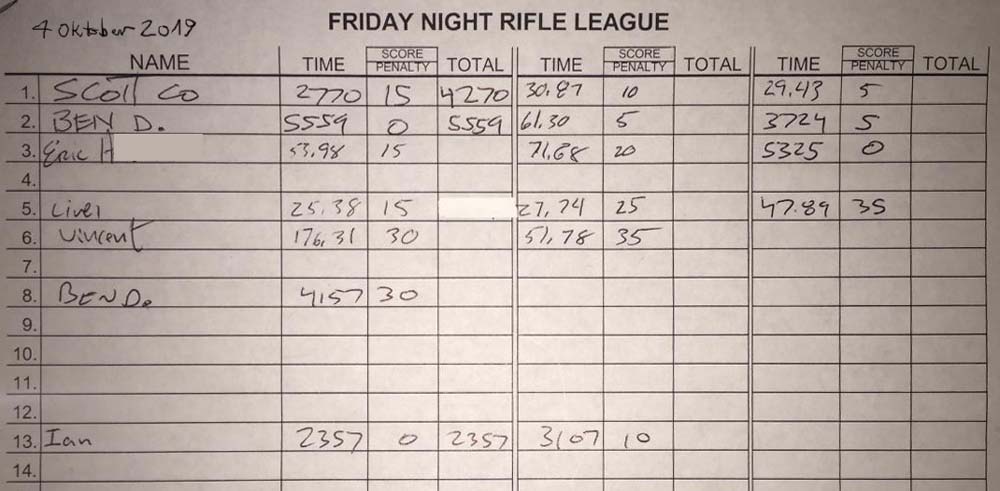 4 Oktober 2019 FRIDAY NIGHT RIFLE LEAGUE
NAME TIME SCORE PENALTY TOTAL TIME SCORE PENALTY TOTAL TIME SCORE PENALTY TOTAL
1. SCOTT CO 2770 15 4270 30.87 10 29.43 5
2. BEN D. 5559 0 5559 61.30 5 3724 5
3. Eric H 53.98 15 71.68 20 5325 0
4.
5. Liver 25.38 15 27.74 25 47.89 35
6. Vincent 176.31 30 51.78 35
7.
8. BEN D. 4157 30
9.
10.
11.
12.
13. Ian 2357 0 2357 3107 10
14.